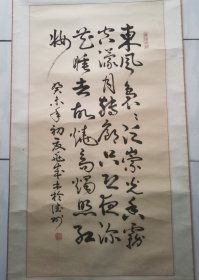 東風嫋嫋泛崇光香霧
空濛月轉廊只恐夜深
花睡去故燒高燭照紅
妝
癸未年初夏